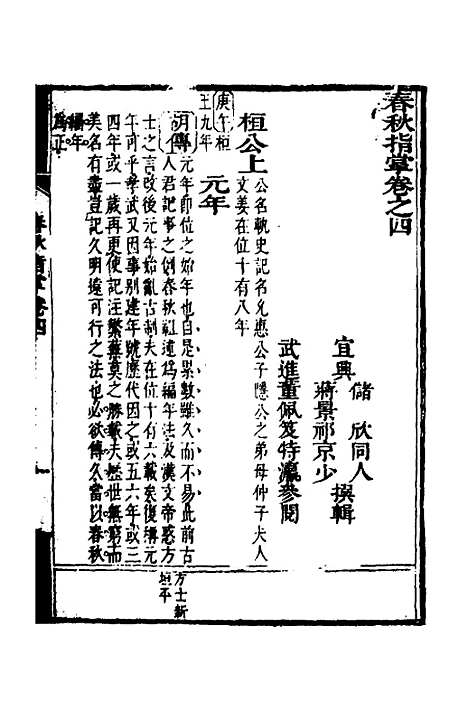 春秋指掌卷之四
宜興 儲 欣同人 蔣景祁京少 撰輯
武進董佩笈特瀛參閱
桓公上 公名軌史記名允惠公子隱公之弟母仲子夫人
文姜在位十有八年
庚午桓
王九年
元年
胡傳 元年即位之始年也自是累數雖久而不易此前古
人君記事之例春秋祖述爲編年法及漢文帝惑方
士之言改後元年始亂古制夫在位十有六載矣復稱元
年可乎孝武又因事別建年號歷代因之或五六年或三
四年或一歲再更使記注繁蕪莫之勝載夫歷世無窮而
美名有盡豈記久明遠可行之法也必欲傳久當以春秋
編年
爲正
方士新
垣平
春秋指掌卷四